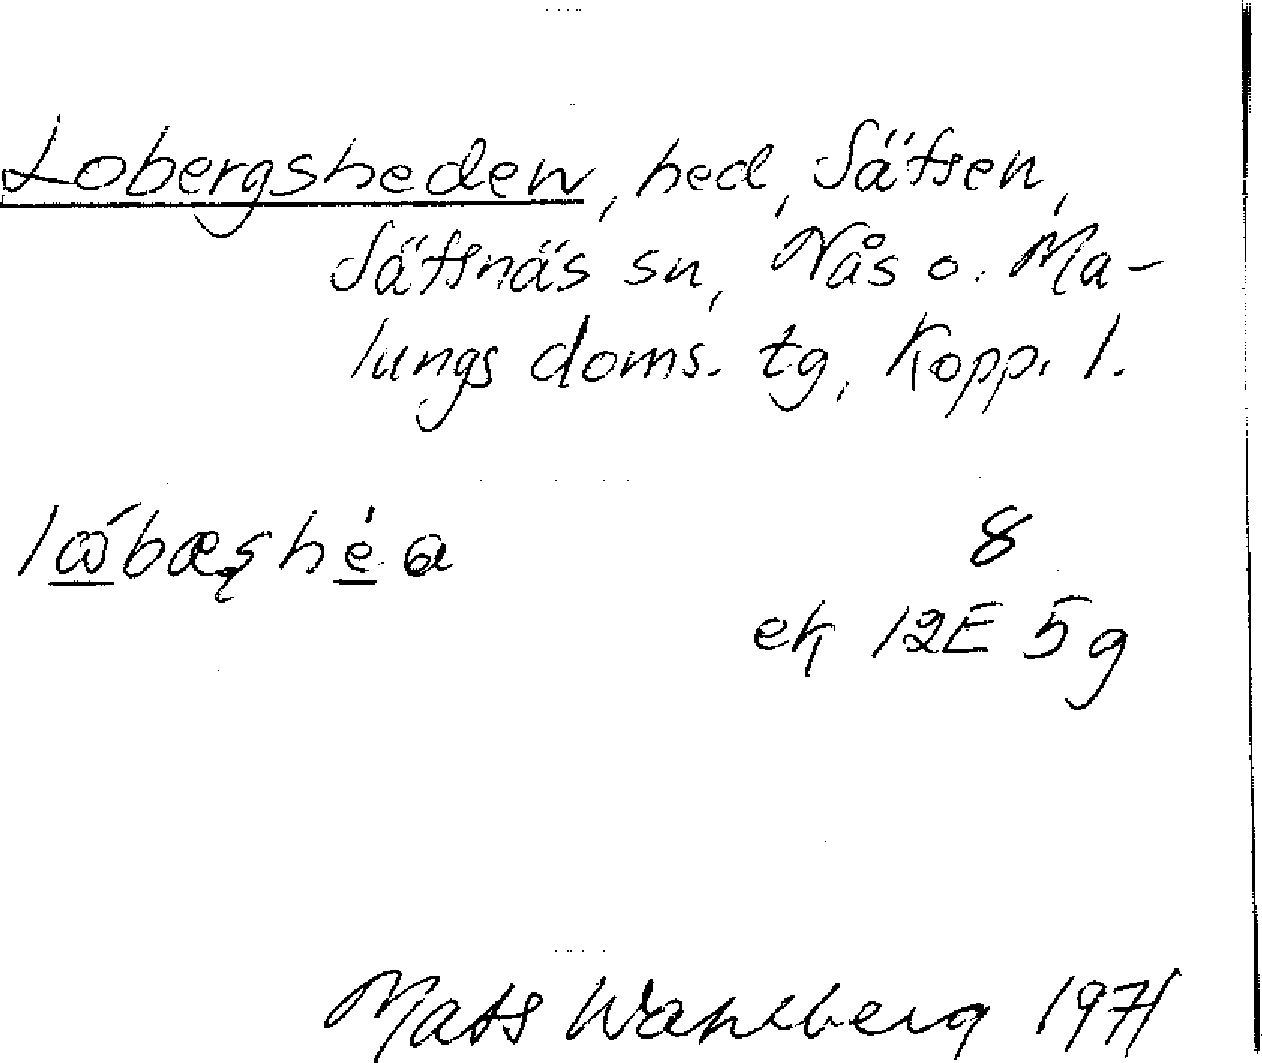 Lobergsheden, hed, Sätsen,
Sätsnäs sn, Nås o. Ma-
lungs doms. tg, Kopp. l.
8
ek 12E 5g
Mats Wahlberg 1971